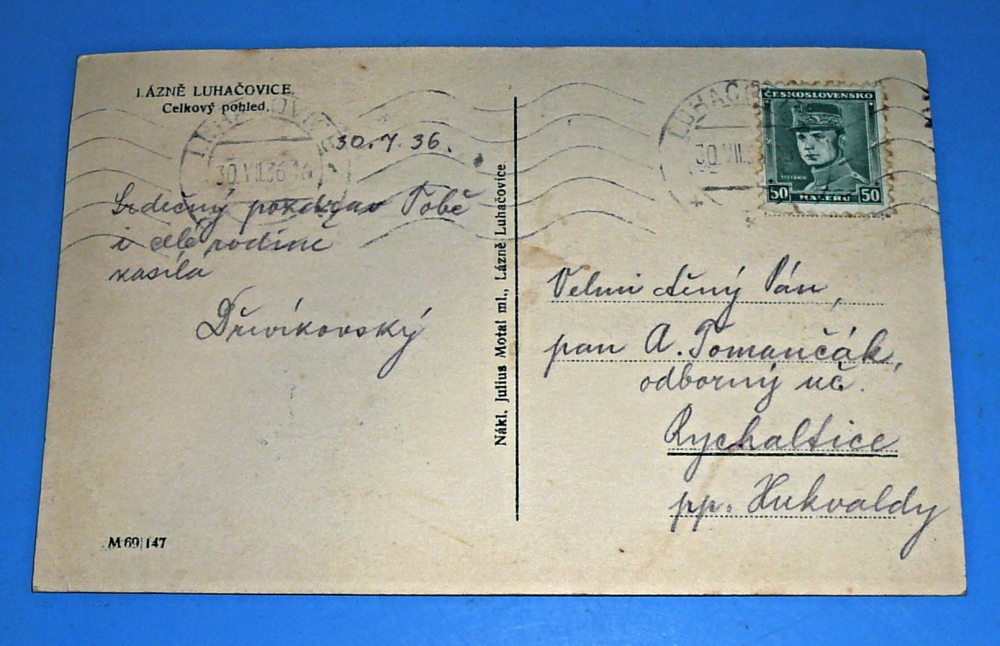 LÁZNĚ LUHAČOVICE.
Celkový pohled.
30.7.36.
30.VII.36
Srdečný pozdrav Tobě
i celé rodině
zasílá
Dřevíkovský
M 69 147
Nákl. Julius Motal ml., Lázně Luhačovice
LUHAČO
30.VII.3
ČESKOSLOVENSKO
ŠTEFÁNIK
50 HALÉŘŮ 50
Velmi ctěný Pán,
pan A. Tomančák,
odborný uč.
Rychaltice
pp. Hukvaldy